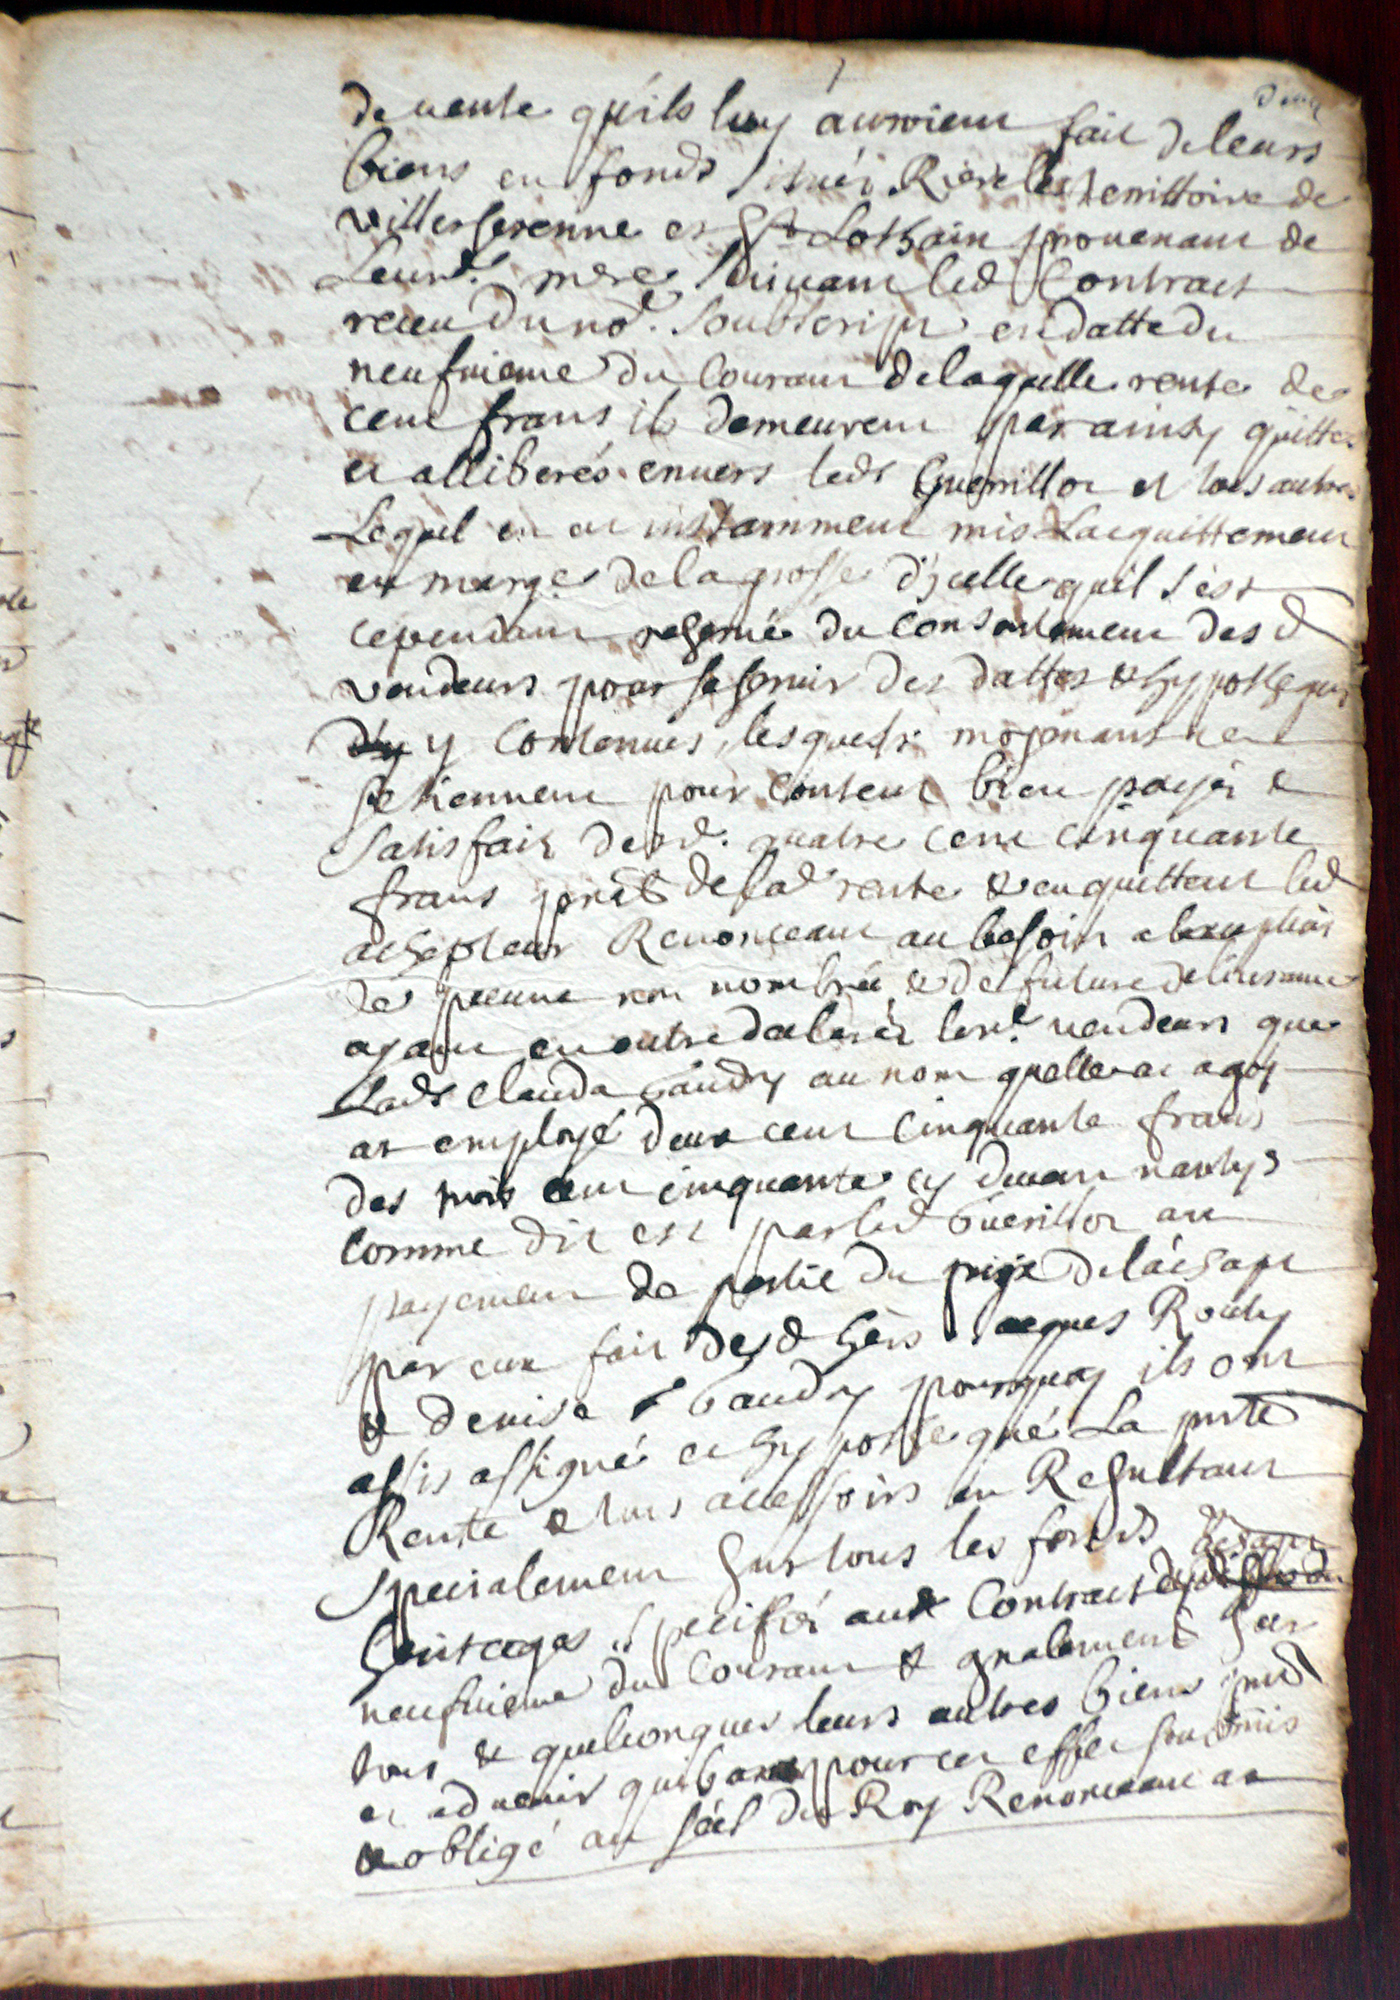 de vente qu'ils luy auroient fait de leurs
biens en fonds situéz Riere les territtoire de
villerserenne et St Lothain prouenant de
Leurd. mere suiuant led Contract
receu du no.re soubscript en datte du
neufuieme du Courant de laquelle rente de
cent frans ils demeurent par ainsy quitte
et alliberés enuers ledt Guerrillot et tous autres
Lequel en at instamment mis Lacquittement
en marge de la grosse d'jcelle quil s'est
cependant reserué du Consentement des d
vendeurs pour se seruir des dattes & hypotheques
y Contenues, lesquelz moyenant ce
se tiennent pour Content bien payéz &
satisfait desd. quatre cent cinquante
frans de lad rente & en quittent led
achepteur Renonceant au besoin a lexception
de pecune non nombrée & de future deliurance
ayant en outre declaréz lesd. vendeurs que
Ladt Clauda Gaudry au nom quelle at agy
at employé deux cent Cinquante frans
des trois cent cinquante cy deuant nantys
Comme dit est par led Guerillot au
payement de partie du prix deláchapt
par eux fait des d hérs Jacques Routy
& denise Gaudry pourquoy ils ont
assis assigné et hypothequé La pnte
Rente & tous accessoirs en Resultant
specialement sur tous les fonds
heritages specifiéz aud Contract
neufuieme du Courant & gnalement sur
tous & quelconques leurs autres biens pnts
et aduenir quils ont pour cet effet soubmis
& obligé au séel du Roy Renonceant at